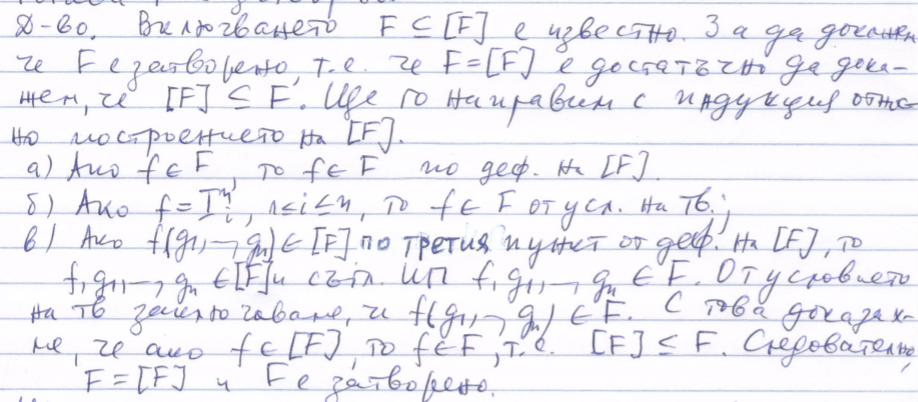 Д-во. Включването F ⊆ [F] е известно. За да докажем
че F е затворено, т.е. че F = [F] е достатъчно да дока-
жем, че [F] ⊆ F. Ще го направим с индукция относ-
но построението на [F].
а) Ако f ∈ F, то f ∈ F по деф. на [F].
б) Ако f = Iⁿᵢ, 1 ≤ i ≤ n, то f ∈ F от усл. на тв.;
в) Ако f(g₁, ..., gₙ) ∈ [F] по третия пункт от деф. на [F], то
f, g₁, ..., gₙ ∈ [F] и съгл. ИП f, g₁, ..., gₙ ∈ F. От условието
на тв заключаваме, че f(g₁, ..., gₙ) ∈ F. С това доказах-
ме, че ако f ∈ [F], то f ∈ F, т.е. [F] ⊆ F. Следователно,
F = [F] и F е затворено.